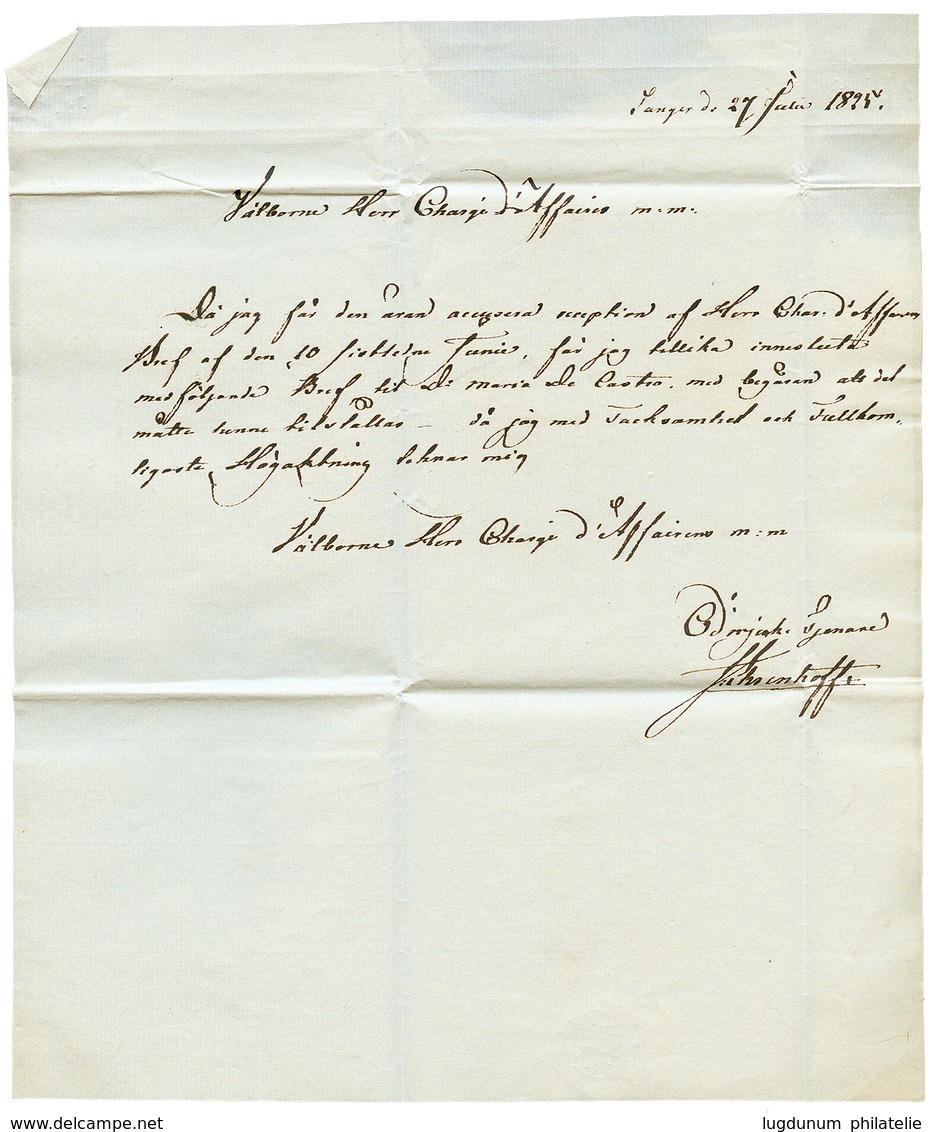 Tanger d. 27 Julii 1825.
Välborne Herr Chargé d'Affaires m: m:
Då jag får den äran accusera reception af Herr Char. d'Affairen
Bref af den 10 sistledne Junii, får jag tillika innesluta
medföljande Bref till Dr Maria De Castro, med begäran att det
måtte kunne tilställas — då jag med Tacksamhet och Fullkom,
ligaste Högaktning teknar mig
Välborne Herr Chargé d'Affairens m: m
Ödmjuk. Tjenare
Ehrenhoff.
www.delcampe.net
lugdunum philatelie